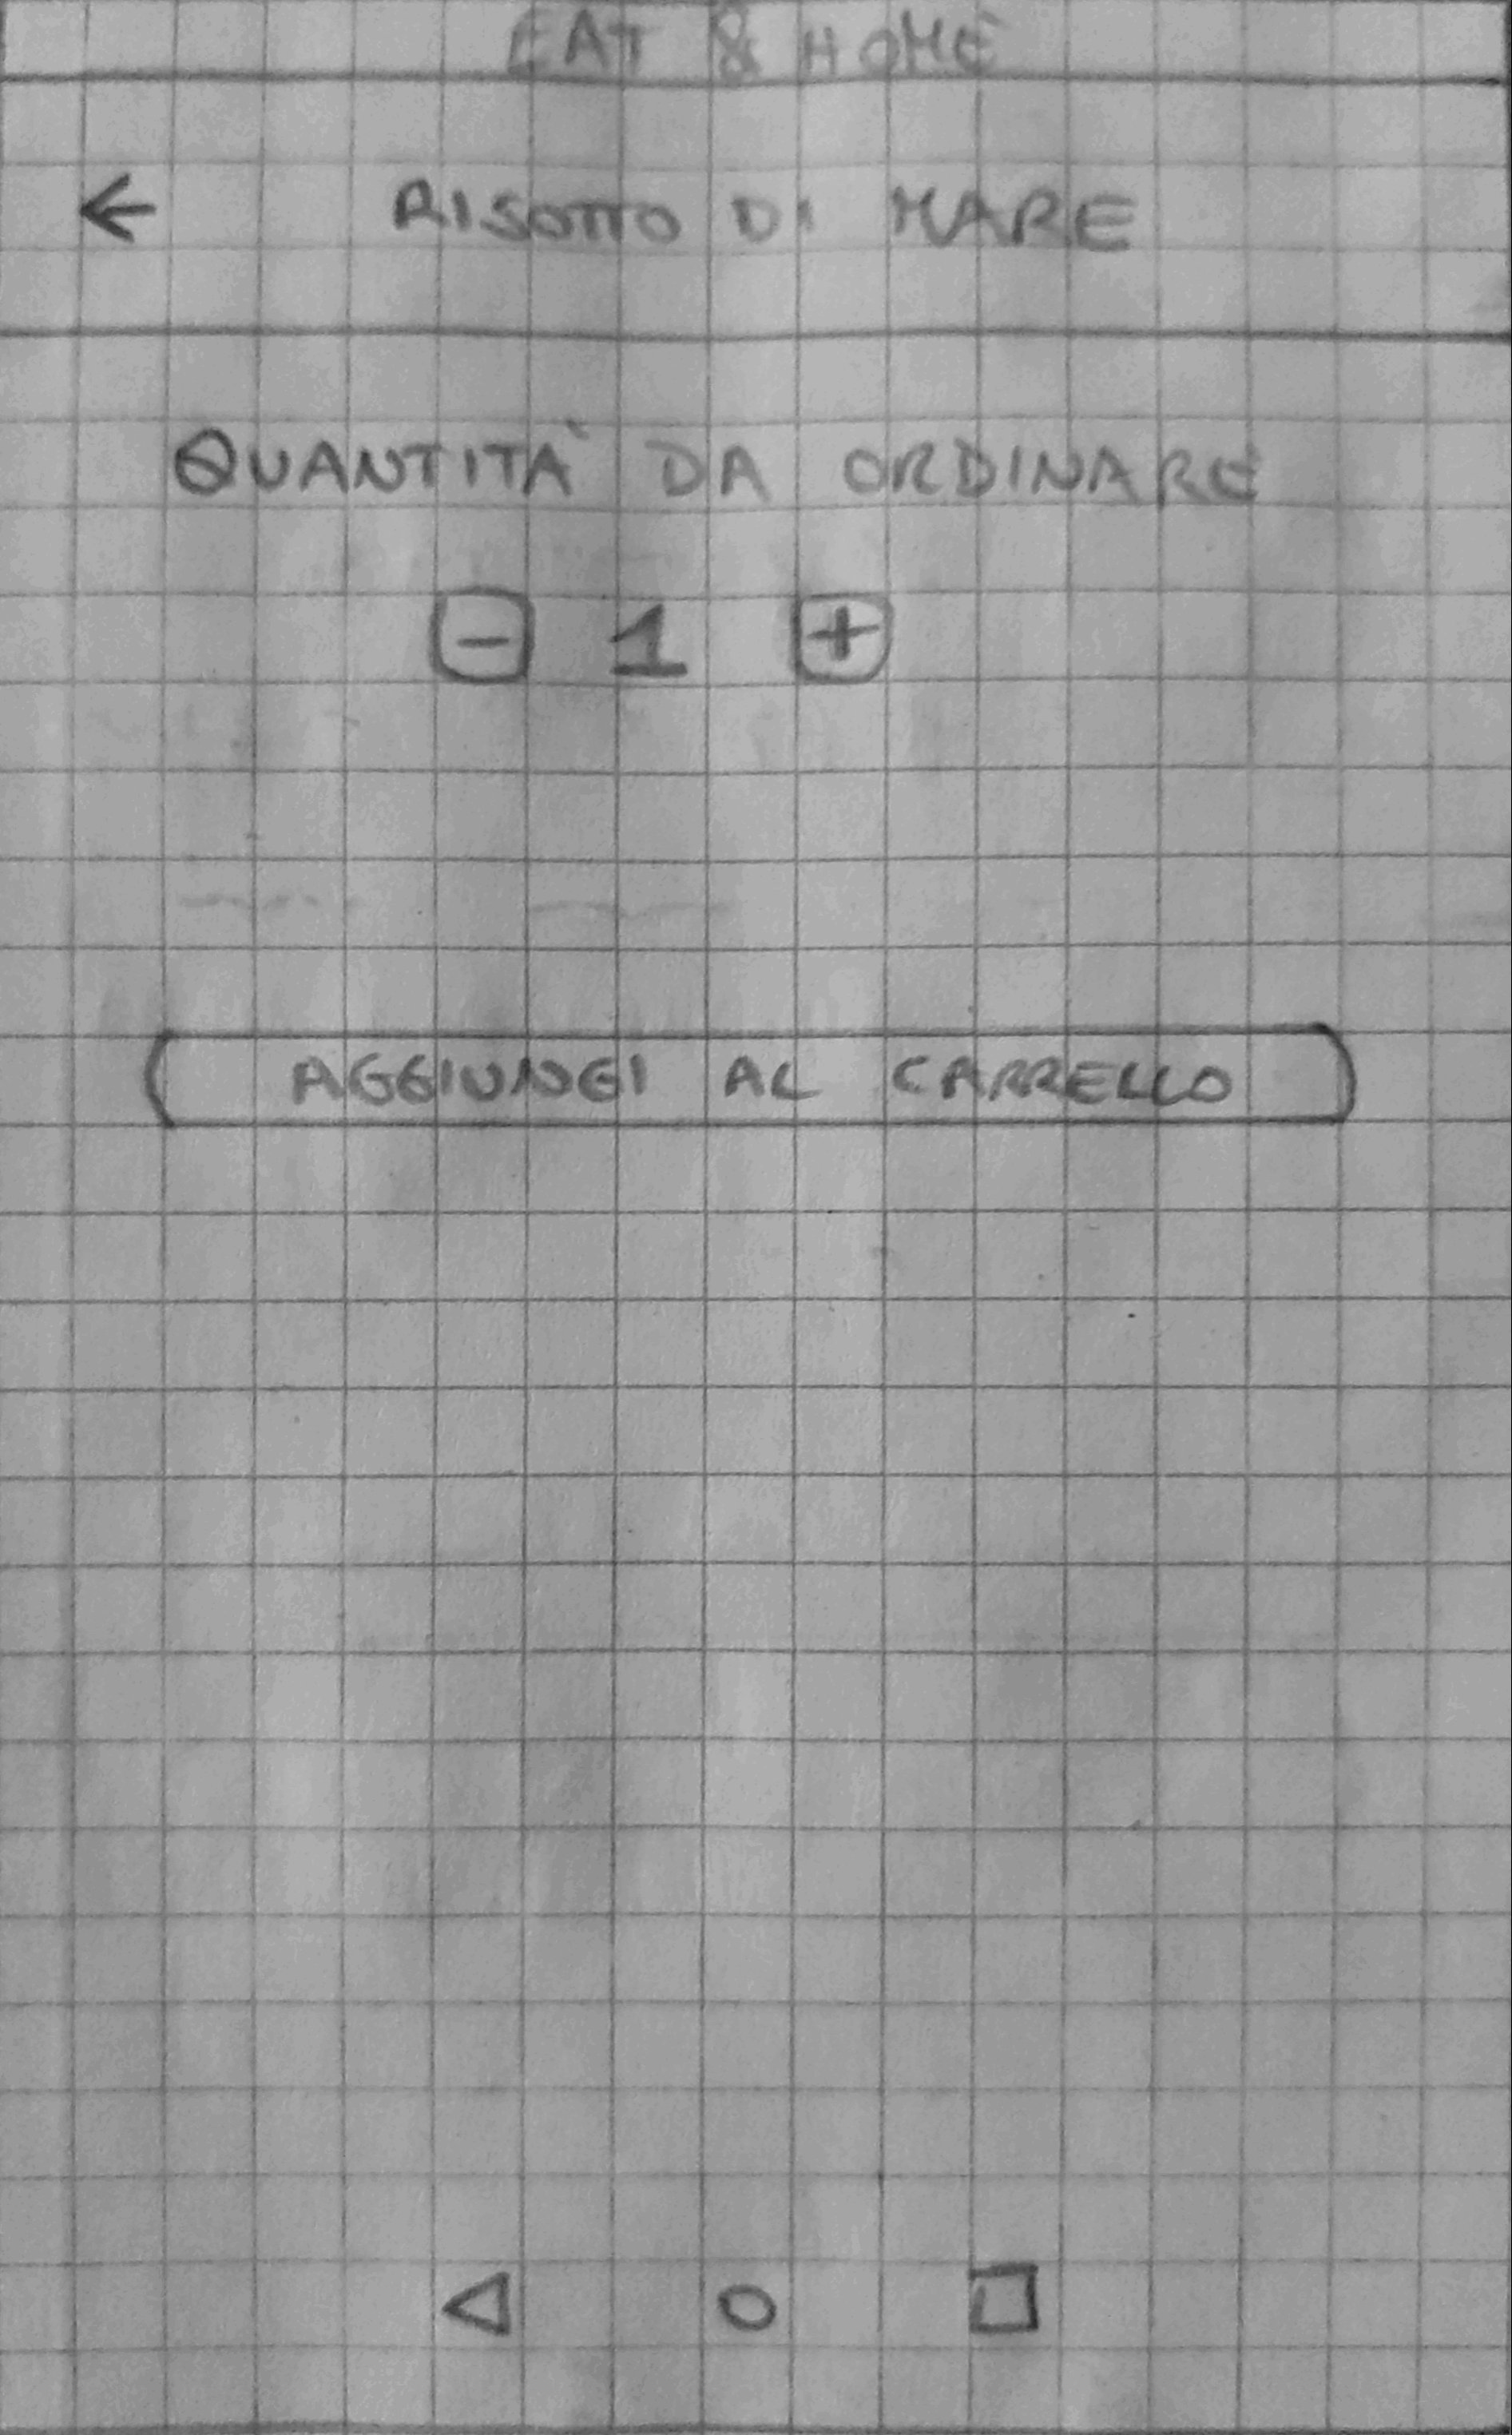 EAT & HOME
← RISOTTO DI MARE
QUANTITÀ DA ORDINARE
- 1 +
AGGIUNGI AL CARRELLO